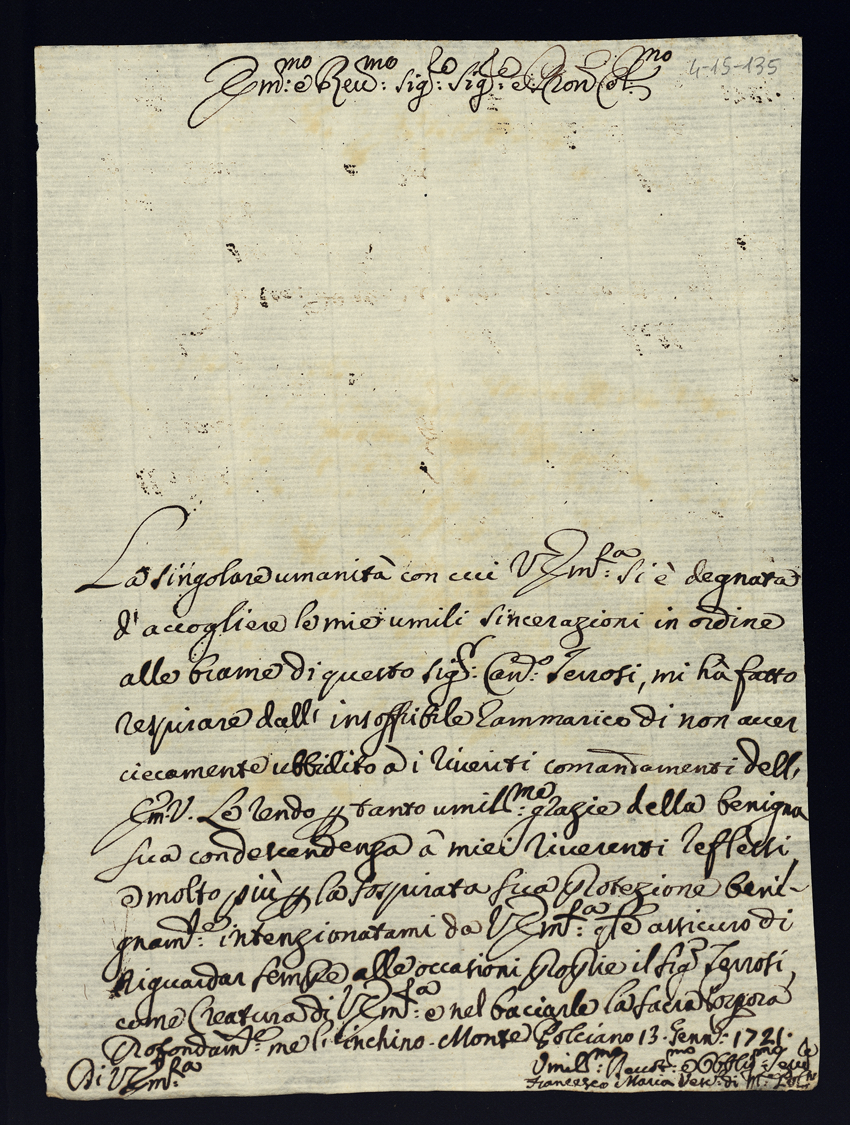 Em.mo e Reu.mo Sig.re Sig.re e Pron Col.mo
4-15-135
La singolare umanità con cui V. Em.za si è degnata
d'accogliere le mie umili sincerazioni in ordine
alle brame di questo Sig.r Can.co Terrosi, mi hà fatto
respirare dall' insoffribile rammarico di non auer
ciecamente ubbidito a i riueriti comandamenti dell'
Em. V. Le rendo p tanto umil.me grazie della benigna
sua condescendenza à miei riuerenti reflessi,
e molto più p la sospirata sua Protezione beni-
gnam.te intenzionatami da V. Em.za, che assicuro di
riguardar sempre alle occasioni proprie il Sig.r Terrosi,
come Creatura di V. Em.za e nel baciarle la sacra Porpora
Profondam.te me l' inchino. Monte Polciano 13. Genn. 1721.
Di V. Em.za
Umil.mo Deuot.mo e Obblig.mo Seru.le
Francesco Maria Vesc. di M.e Pol.no